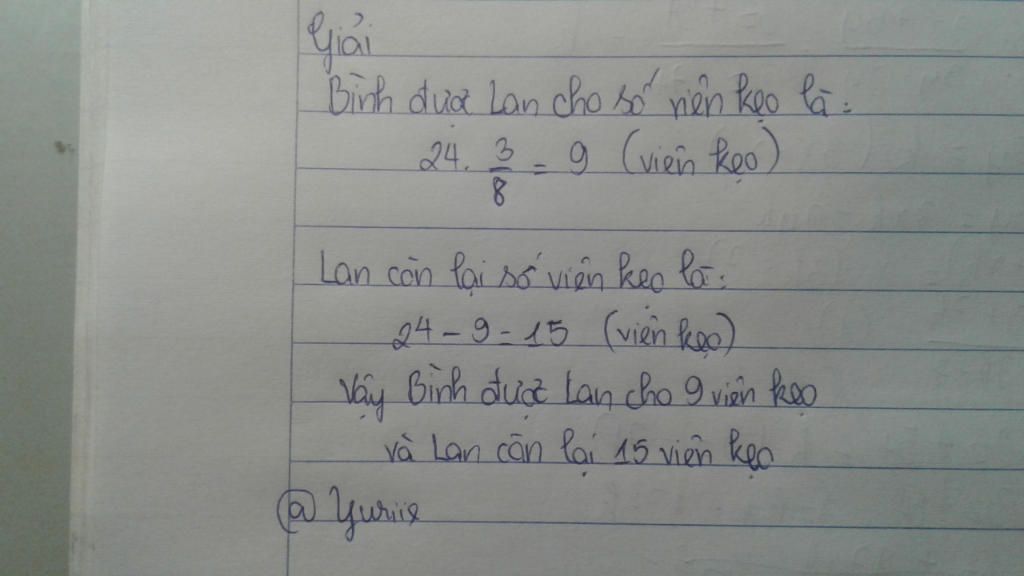 Giải
Bình được Lan cho số viên kẹo là:
24. 3/8 = 9 (viên kẹo)
Lan còn lại số viên kẹo là:
24 - 9 = 15 (viên kẹo)
Vậy Bình được Lan cho 9 viên kẹo
và Lan còn lại 15 viên kẹo
@ Yuriie